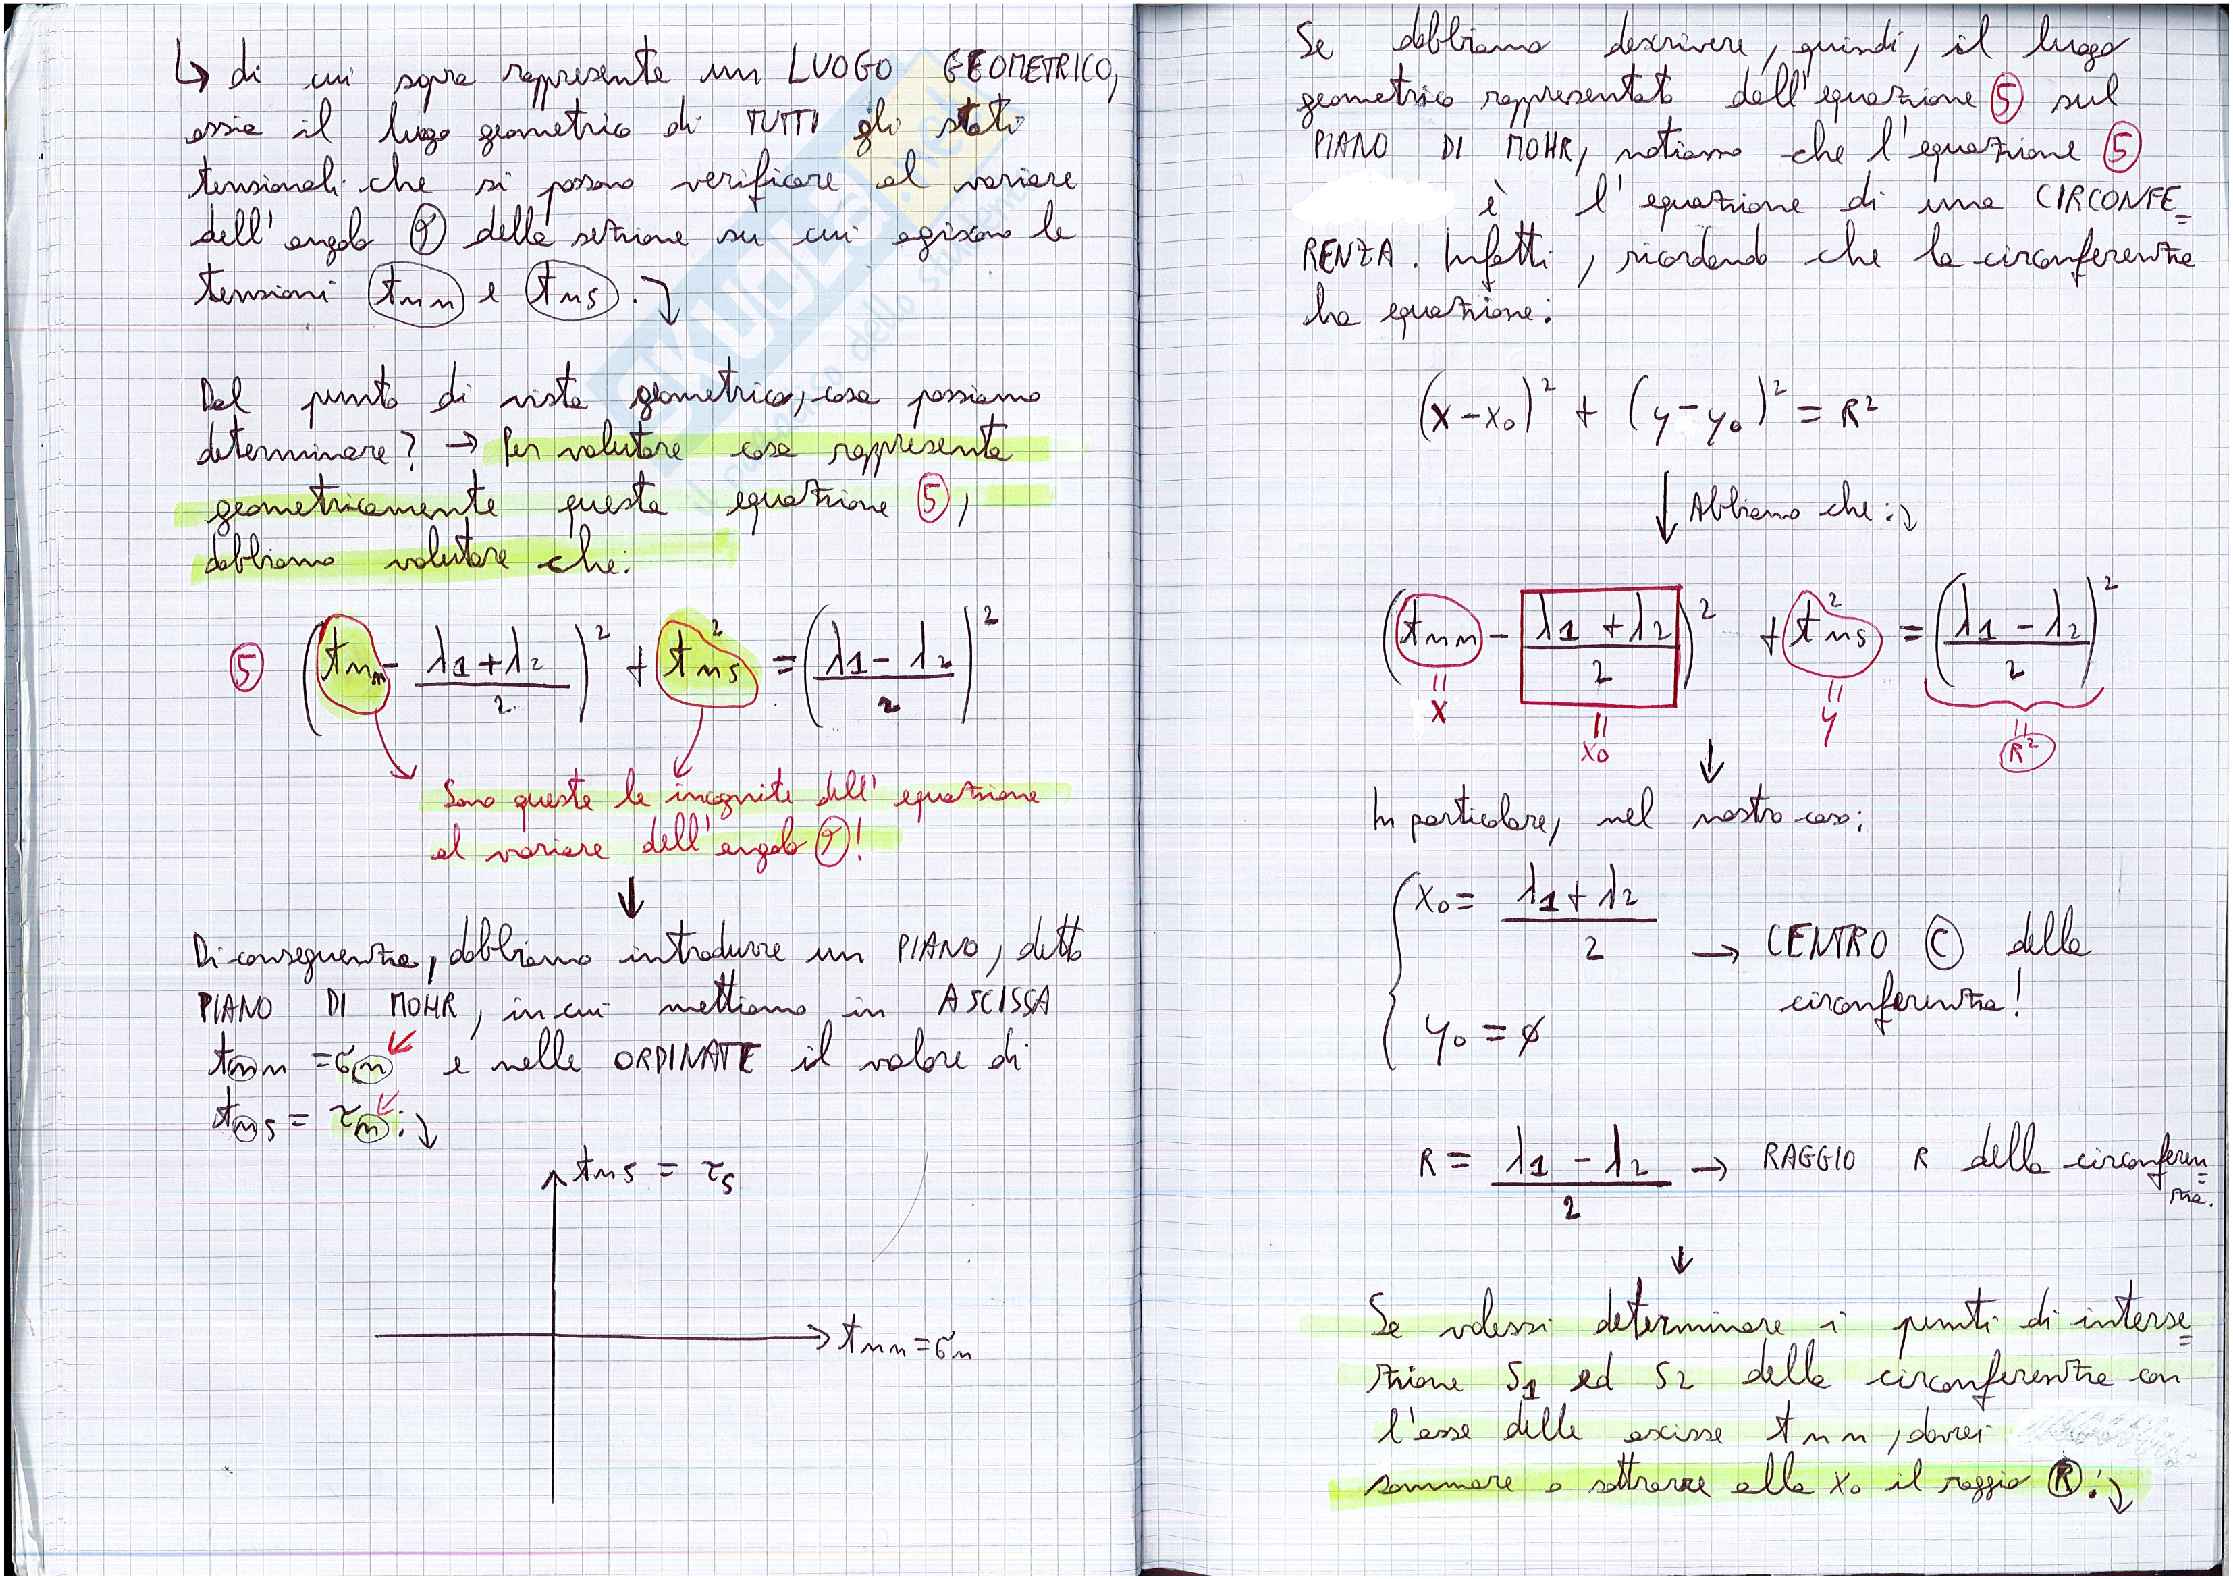 ↳ di cui sopra rappresenta un LUOGO GEOMETRICO,
ossia il luogo geometrico di TUTTI gli stati
tensionali che si possono verificare al variare
dell'angolo φ della sezione su cui agiscono le
tensioni tnn e tns. ↘
Dal punto di vista geometrico, cosa possiamo
determinare? → Per valutare cosa rappresenta
geometricamente questa equazione ⑤,
dobbiamo valutare che:
⑤ (tnn - (λ1+λ2)/2)² + tns² = ((λ1-λ2)/2)²
Sono queste le incognite dell'equazione
al variare dell'angolo φ!
↓
Di conseguenza, dobbiamo introdurre un PIANO, detto
PIANO DI MOHR, in cui mettiamo in ASCISSA
tnn = σn e nelle ORDINATE il valore di
tns = τn: ↘
tns = τs
tnn = σn
Se dobbiamo descrivere, quindi, il luogo
geometrico rappresentato dall'equazione ⑤ sul
PIANO DI MOHR, notiamo che l'equazione ⑤
è l'equazione di una CIRCONFE=
RENZA. Infatti, ricordando che la circonferenza
ha equazione:
(x-x0)² + (y-y0)² = R²
↓ Abbiamo che: ↘
(tnn - (λ1+λ2)/2)² + tns² = ((λ1-λ2)/2)²
= x = x0 = y = R²
↓
In particolare, nel nostro caso:
x0 = (λ1+λ2)/2 → CENTRO Ⓒ della
circonferenza!
y0 = ∅
R = (λ1-λ2)/2 → RAGGIO R della circonferen=
za.
↓
Se volessi determinare i punti di interse=
zione S1 ed S2 della circonferenza con
l'asse delle ascisse tnn, dovrei
sommare o sottrarre alla x0 il raggio Ⓡ: ↘